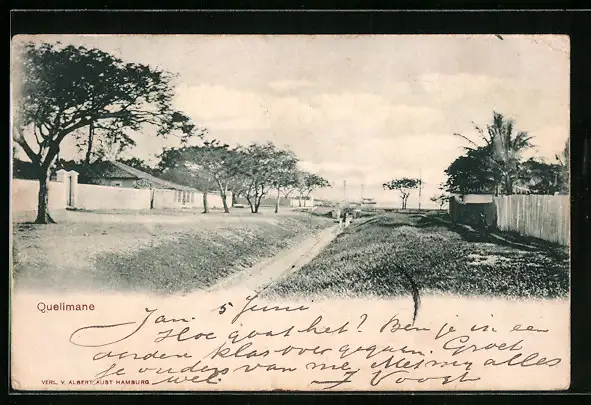 Quelimane
Jan. 5 Juni
Hoe gaat het? Ben je in een
andere klas overgegaan. Groet
je ouders van me. Met mij alles
wel. J Voogt
VERL. V. ALBERT AUST HAMBURG